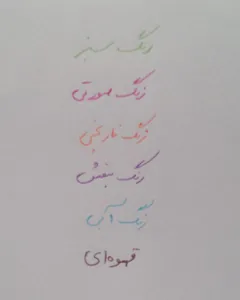 رنگ سبز
رنگ صورتی
رنگ نارنجی
رنگ بنفش
رنگ آبی
قهوه‌ای